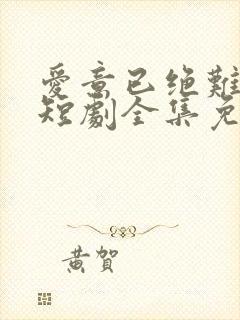 愛意已绝難
短劇全集免
黄贺